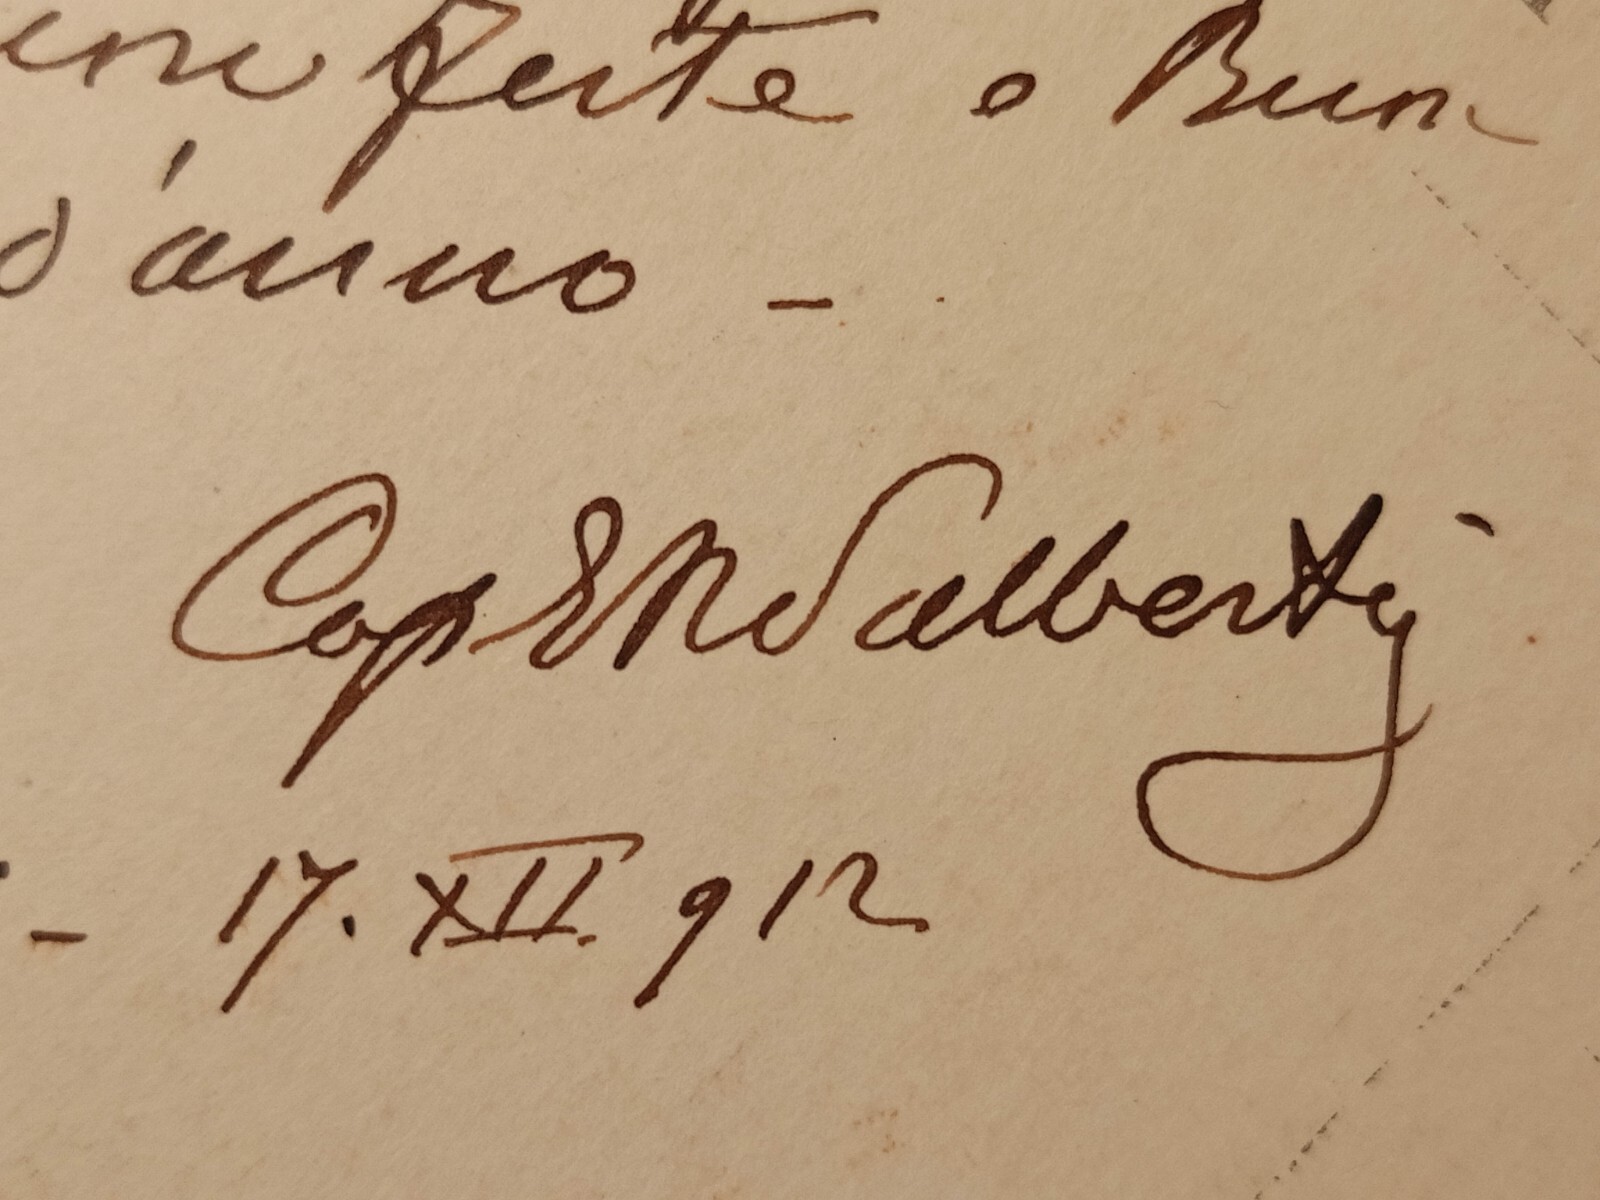 feste e Buon
d'anno -
Cap E A d'Albertis
- 17. XII. 912